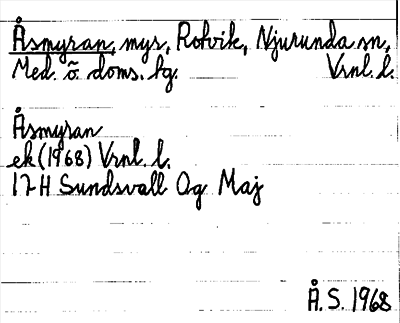 Åsmyran, myr, Rotvik, Njurunda sn,
Med. ö. doms. bg. Vrnl. l.
Åsmyran
ek (1968) Vrnl. l.
17H Sundsvall Og Maj
Å. S. 1968